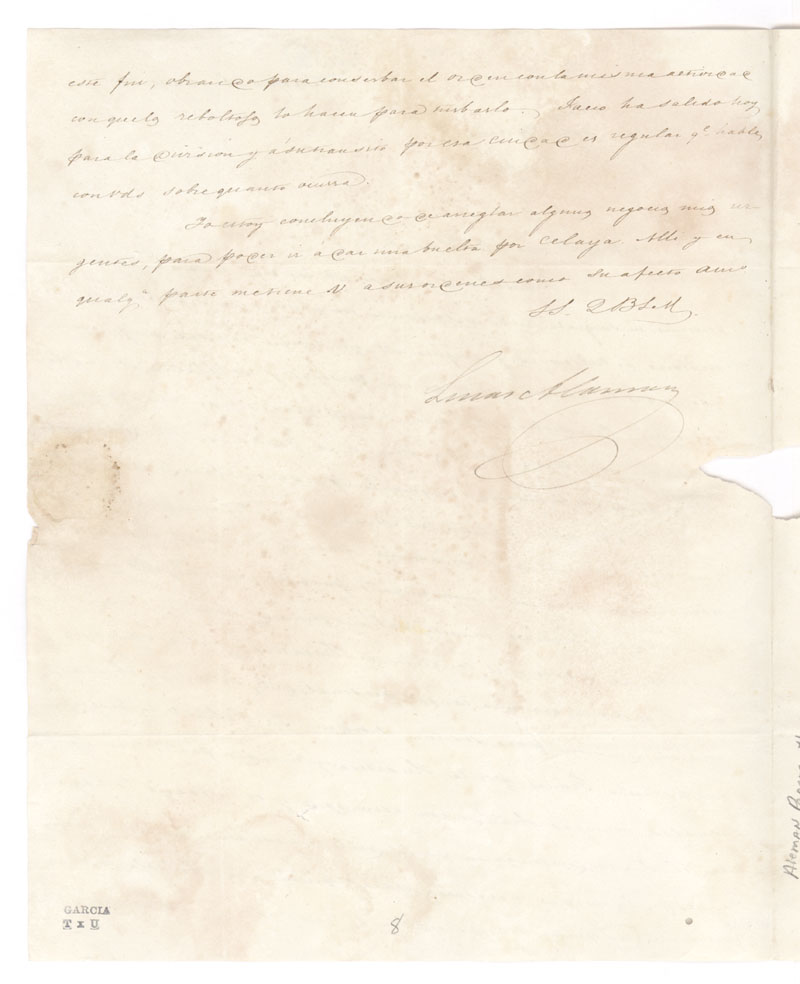 este fin, obrando para conserbar el orden con la misma actividad
con que los reboltosos lo hacen para turbarlo. Facio ha salido hoy
para la division y á su transito por esa ciudad es regular qe. hable
con vds sobre quanto ocurra.
Yo estoy concluyendo de arreglar algunos negocios mios ur-
gentes, para poder ir á dar mi buelta por Celaya. Alli y en
qualqa. parte me tiene V. a sus ordenes como su afecto amo
SS. Q B S M.
Lucas Alaman
GARCIA
T x U
8
Aleman